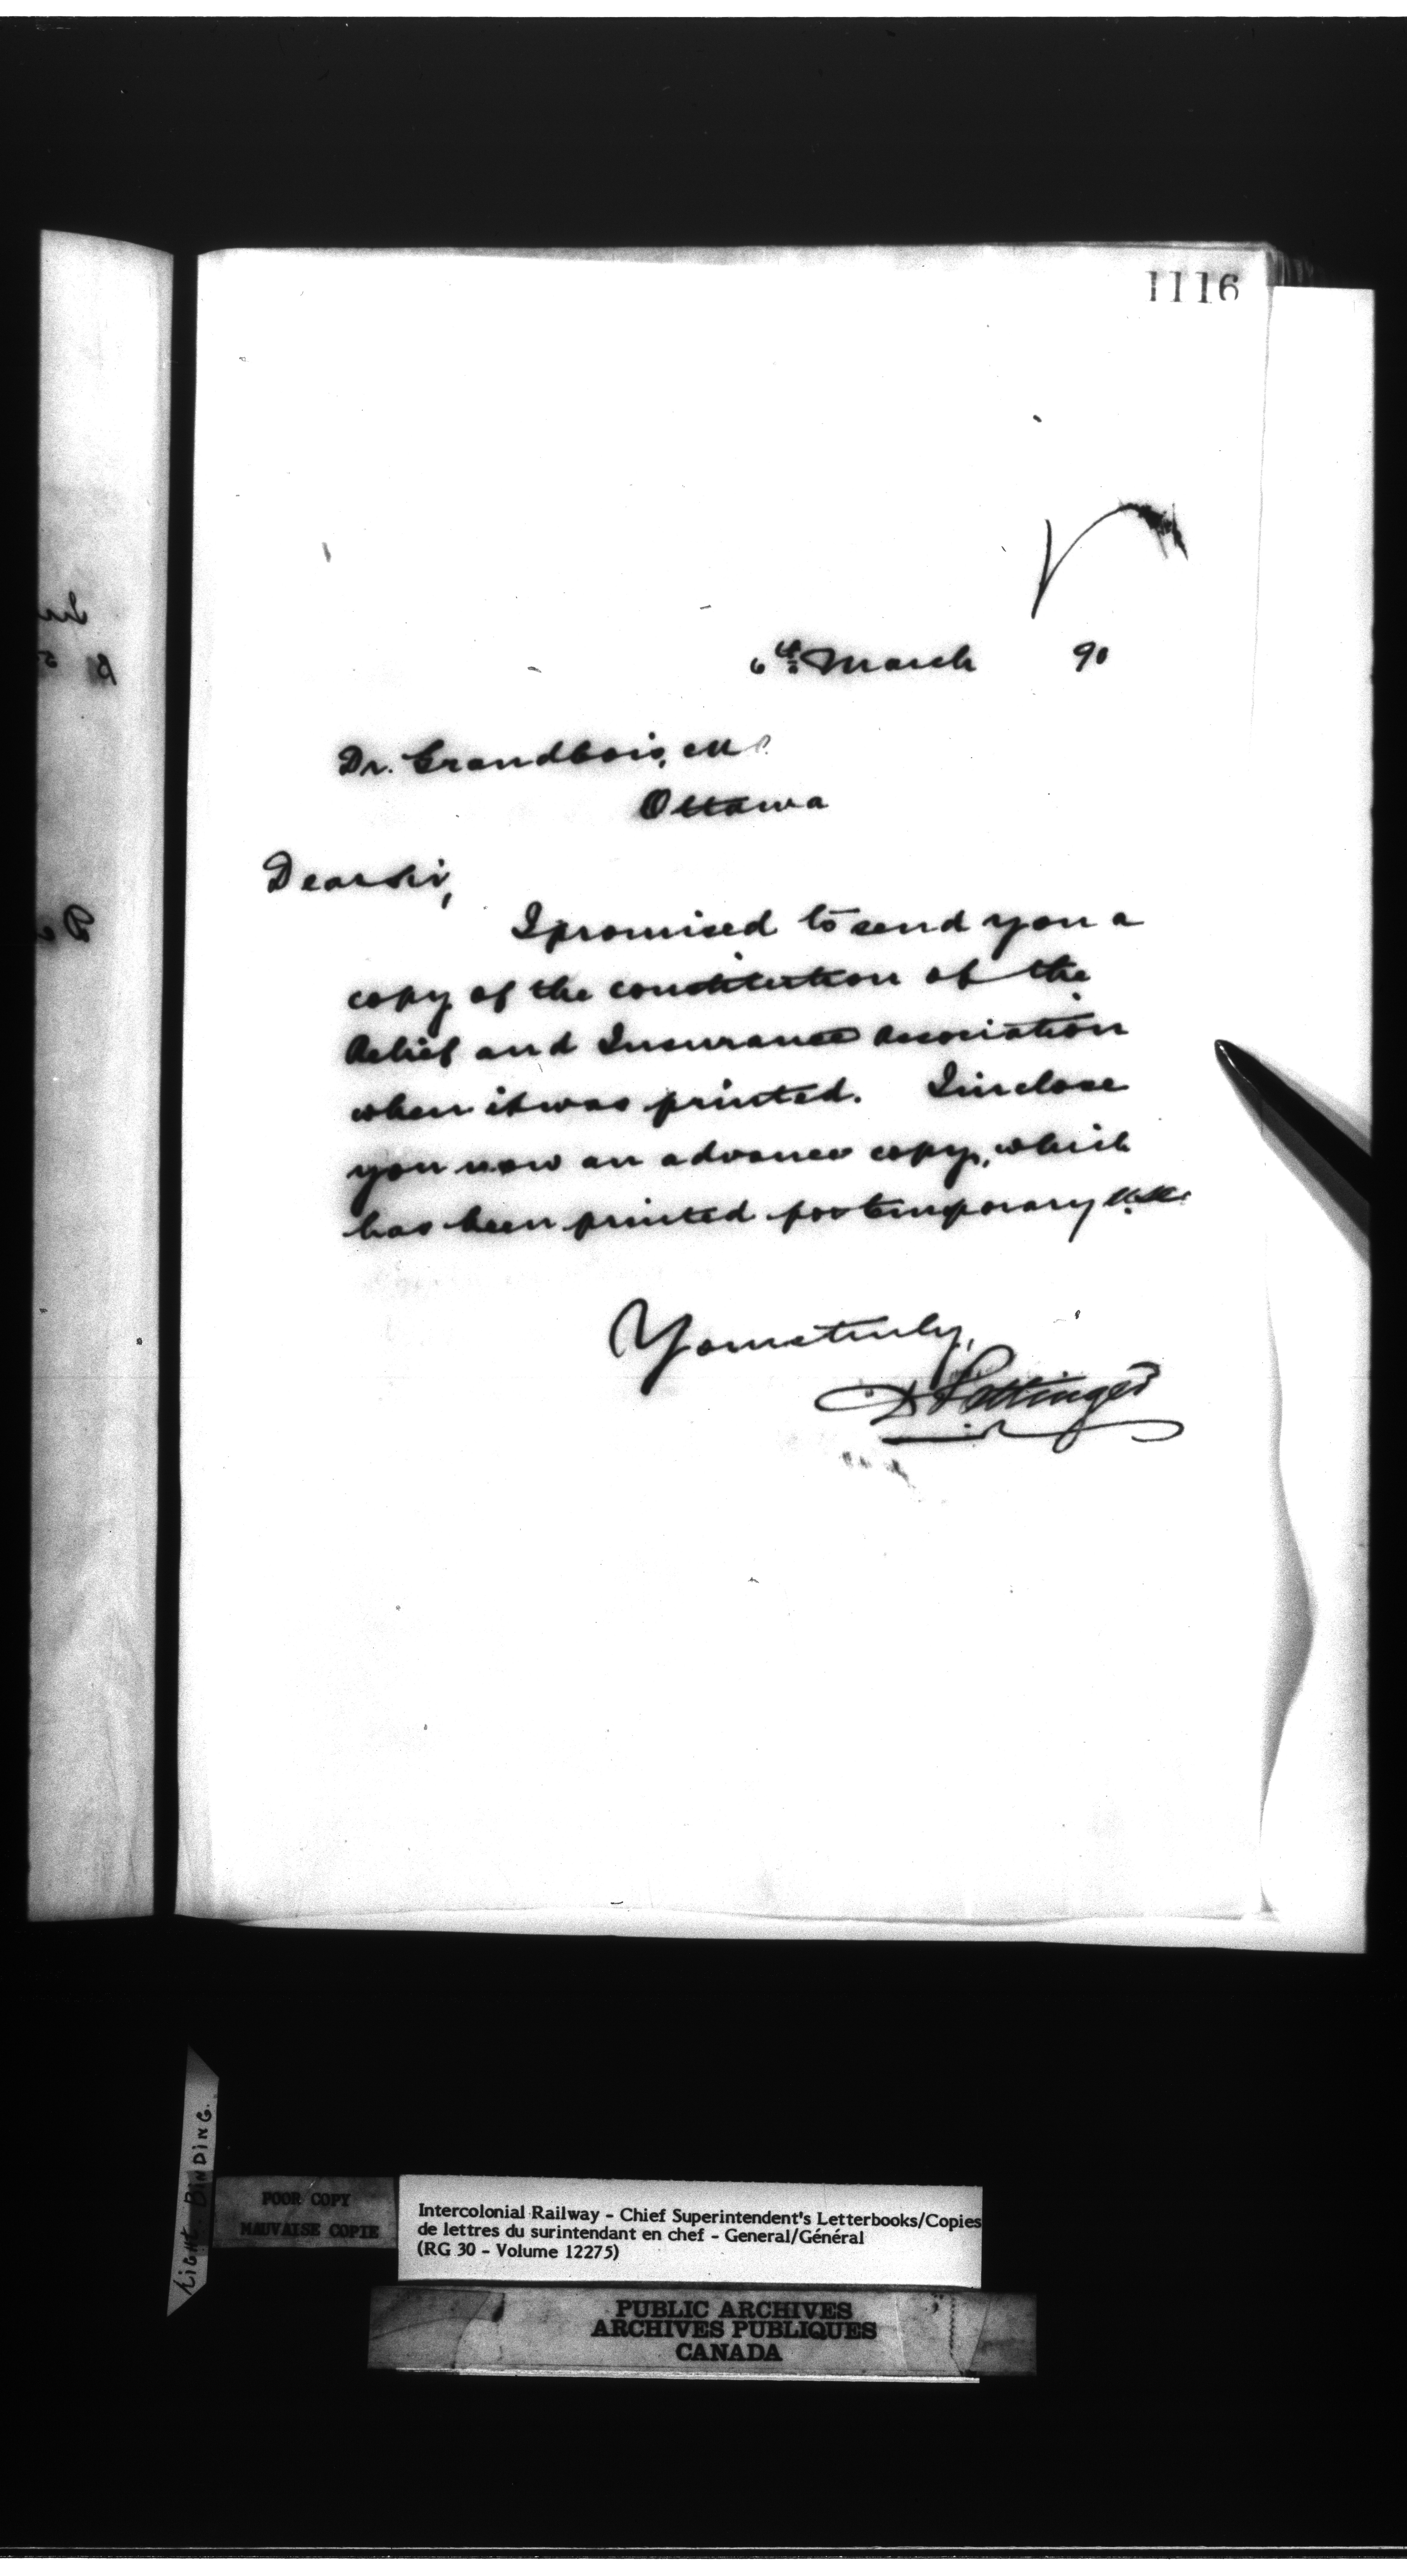 1116
6th March 90
Dr. Grandbois, M.P.
Ottawa
Dear Sir,
I promised to send you a
copy of the constitution of the
Relief and Insurance Association
when it was printed. I inclose
you now an advance copy, which
has been printed for temporary use.
Yours truly,
D Pottinger
TIGHT BINDING.
POOR COPY
MAUVAISE COPIE
Intercolonial Railway - Chief Superintendent's Letterbooks/Copies
de lettres du surintendant en chef - General/Général
(RG 30 - Volume 12275)
PUBLIC ARCHIVES
ARCHIVES PUBLIQUES
CANADA